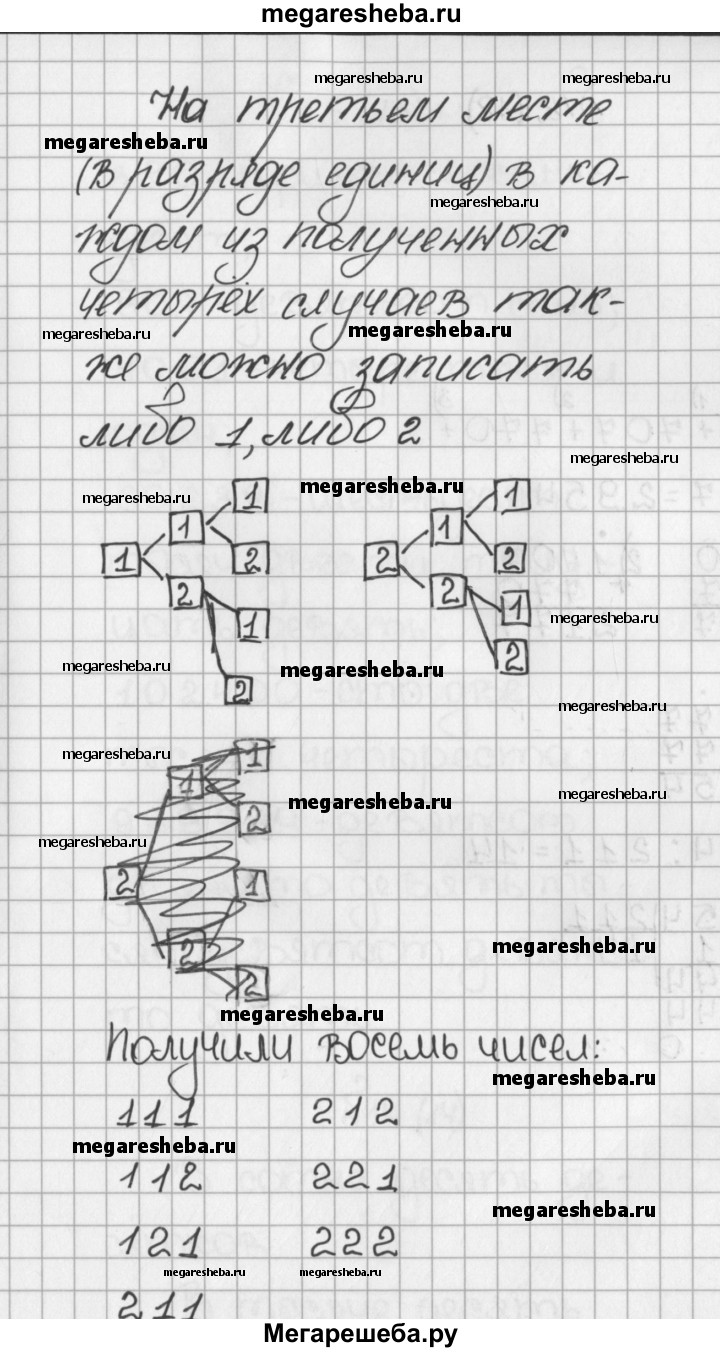 megaresheba.ru
megaresheba.ru megaresheba.ru
На третьем месте
megaresheba.ru
(в разряде единиц) в ка-
megaresheba.ru
ждом из полученных
четырех случаев так-
megaresheba.ru megaresheba.ru
же можно записать
либо 1, либо 2
megaresheba.ru
megaresheba.ru megaresheba.ru
1 1
1 1
1 2 2 2
2 2
1 1
megaresheba.ru
2
megaresheba.ru megaresheba.ru
2
megaresheba.ru
megaresheba.ru
1
1
megaresheba.ru
megaresheba.ru
2
megaresheba.ru
2 1
megaresheba.ru
2
2
megaresheba.ru
Получили восемь чисел:
megaresheba.ru
111 212
megaresheba.ru
112 221
megaresheba.ru
121 222
megaresheba.ru megaresheba.ru
211
Мегарешеба.ру